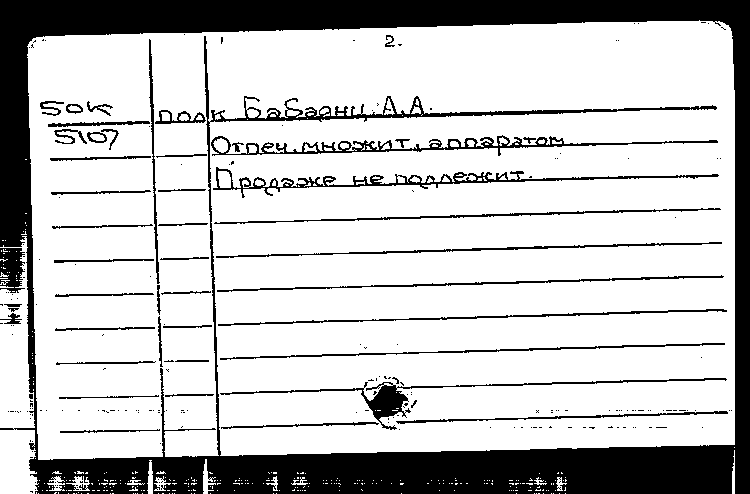 2.
50К полк Бабаянц А.А.
5107 Отпеч. множит. аппаратом
Продаже не подлежит.